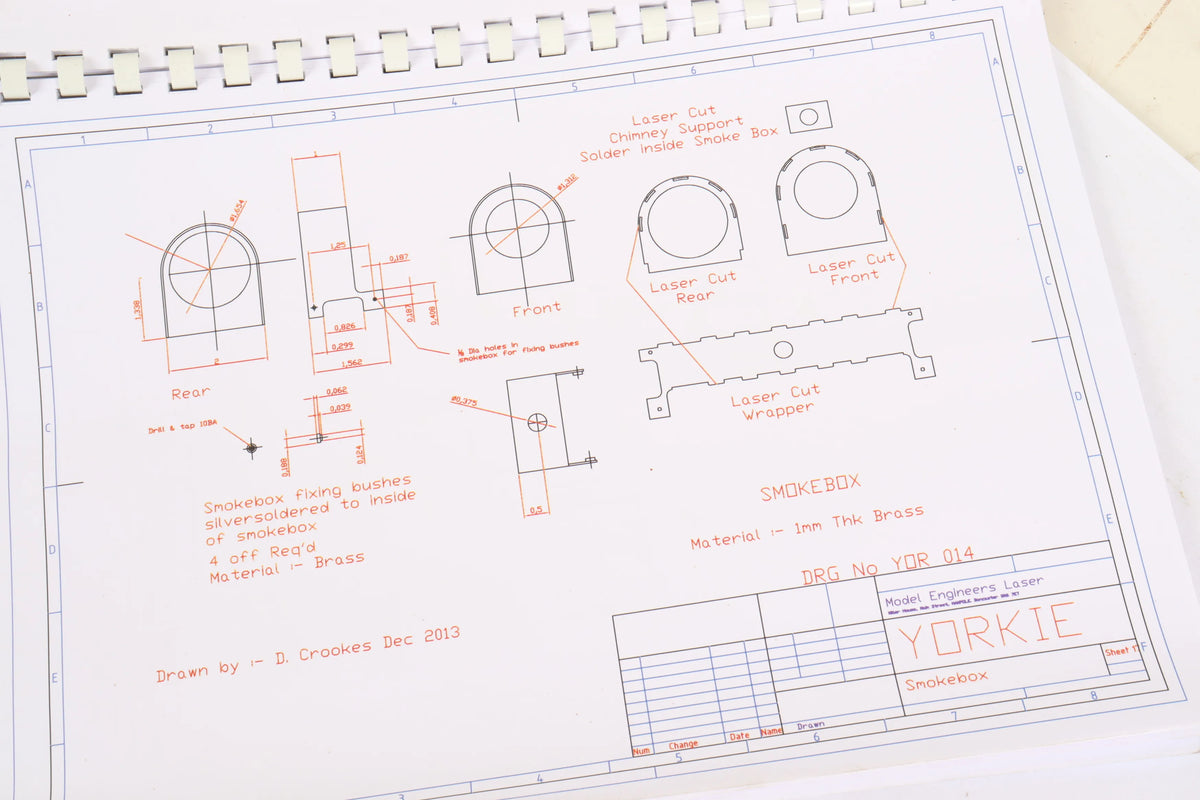 1
2
3
4
5
6
7
8
A
A
Laser Cut
Chimney Support
Solder inside Smoke Box
1
Ø1,654
Ø1,312
1,25
0,187
B
1,338
0,187
0,408
C
Laser Cut
Rear
Laser Cut
Front
Front
0,826
0,299
1,562
2
Rear
⅛ Dia holes in
smokebox for fixing bushes
0,062
0,039
Ø0,375
Laser Cut
Wrapper
D
C
Drill & tap 10BA
0,188
0,124
Smokebox fixing bushes
silversoldered to inside
of smokebox
4 off Req'd
Material :- Brass
0,5
SMOKEBOX
Material :- 1mm Thk Brass
E
D
DRG No YOR 014
Model Engineers Laser
YORKIE
Smokebox
Sheet 1
F
Drawn by :- D. Crookes Dec 2013
E
Num
Change
Date
Name
Drawn
3
4
5
6
7
8